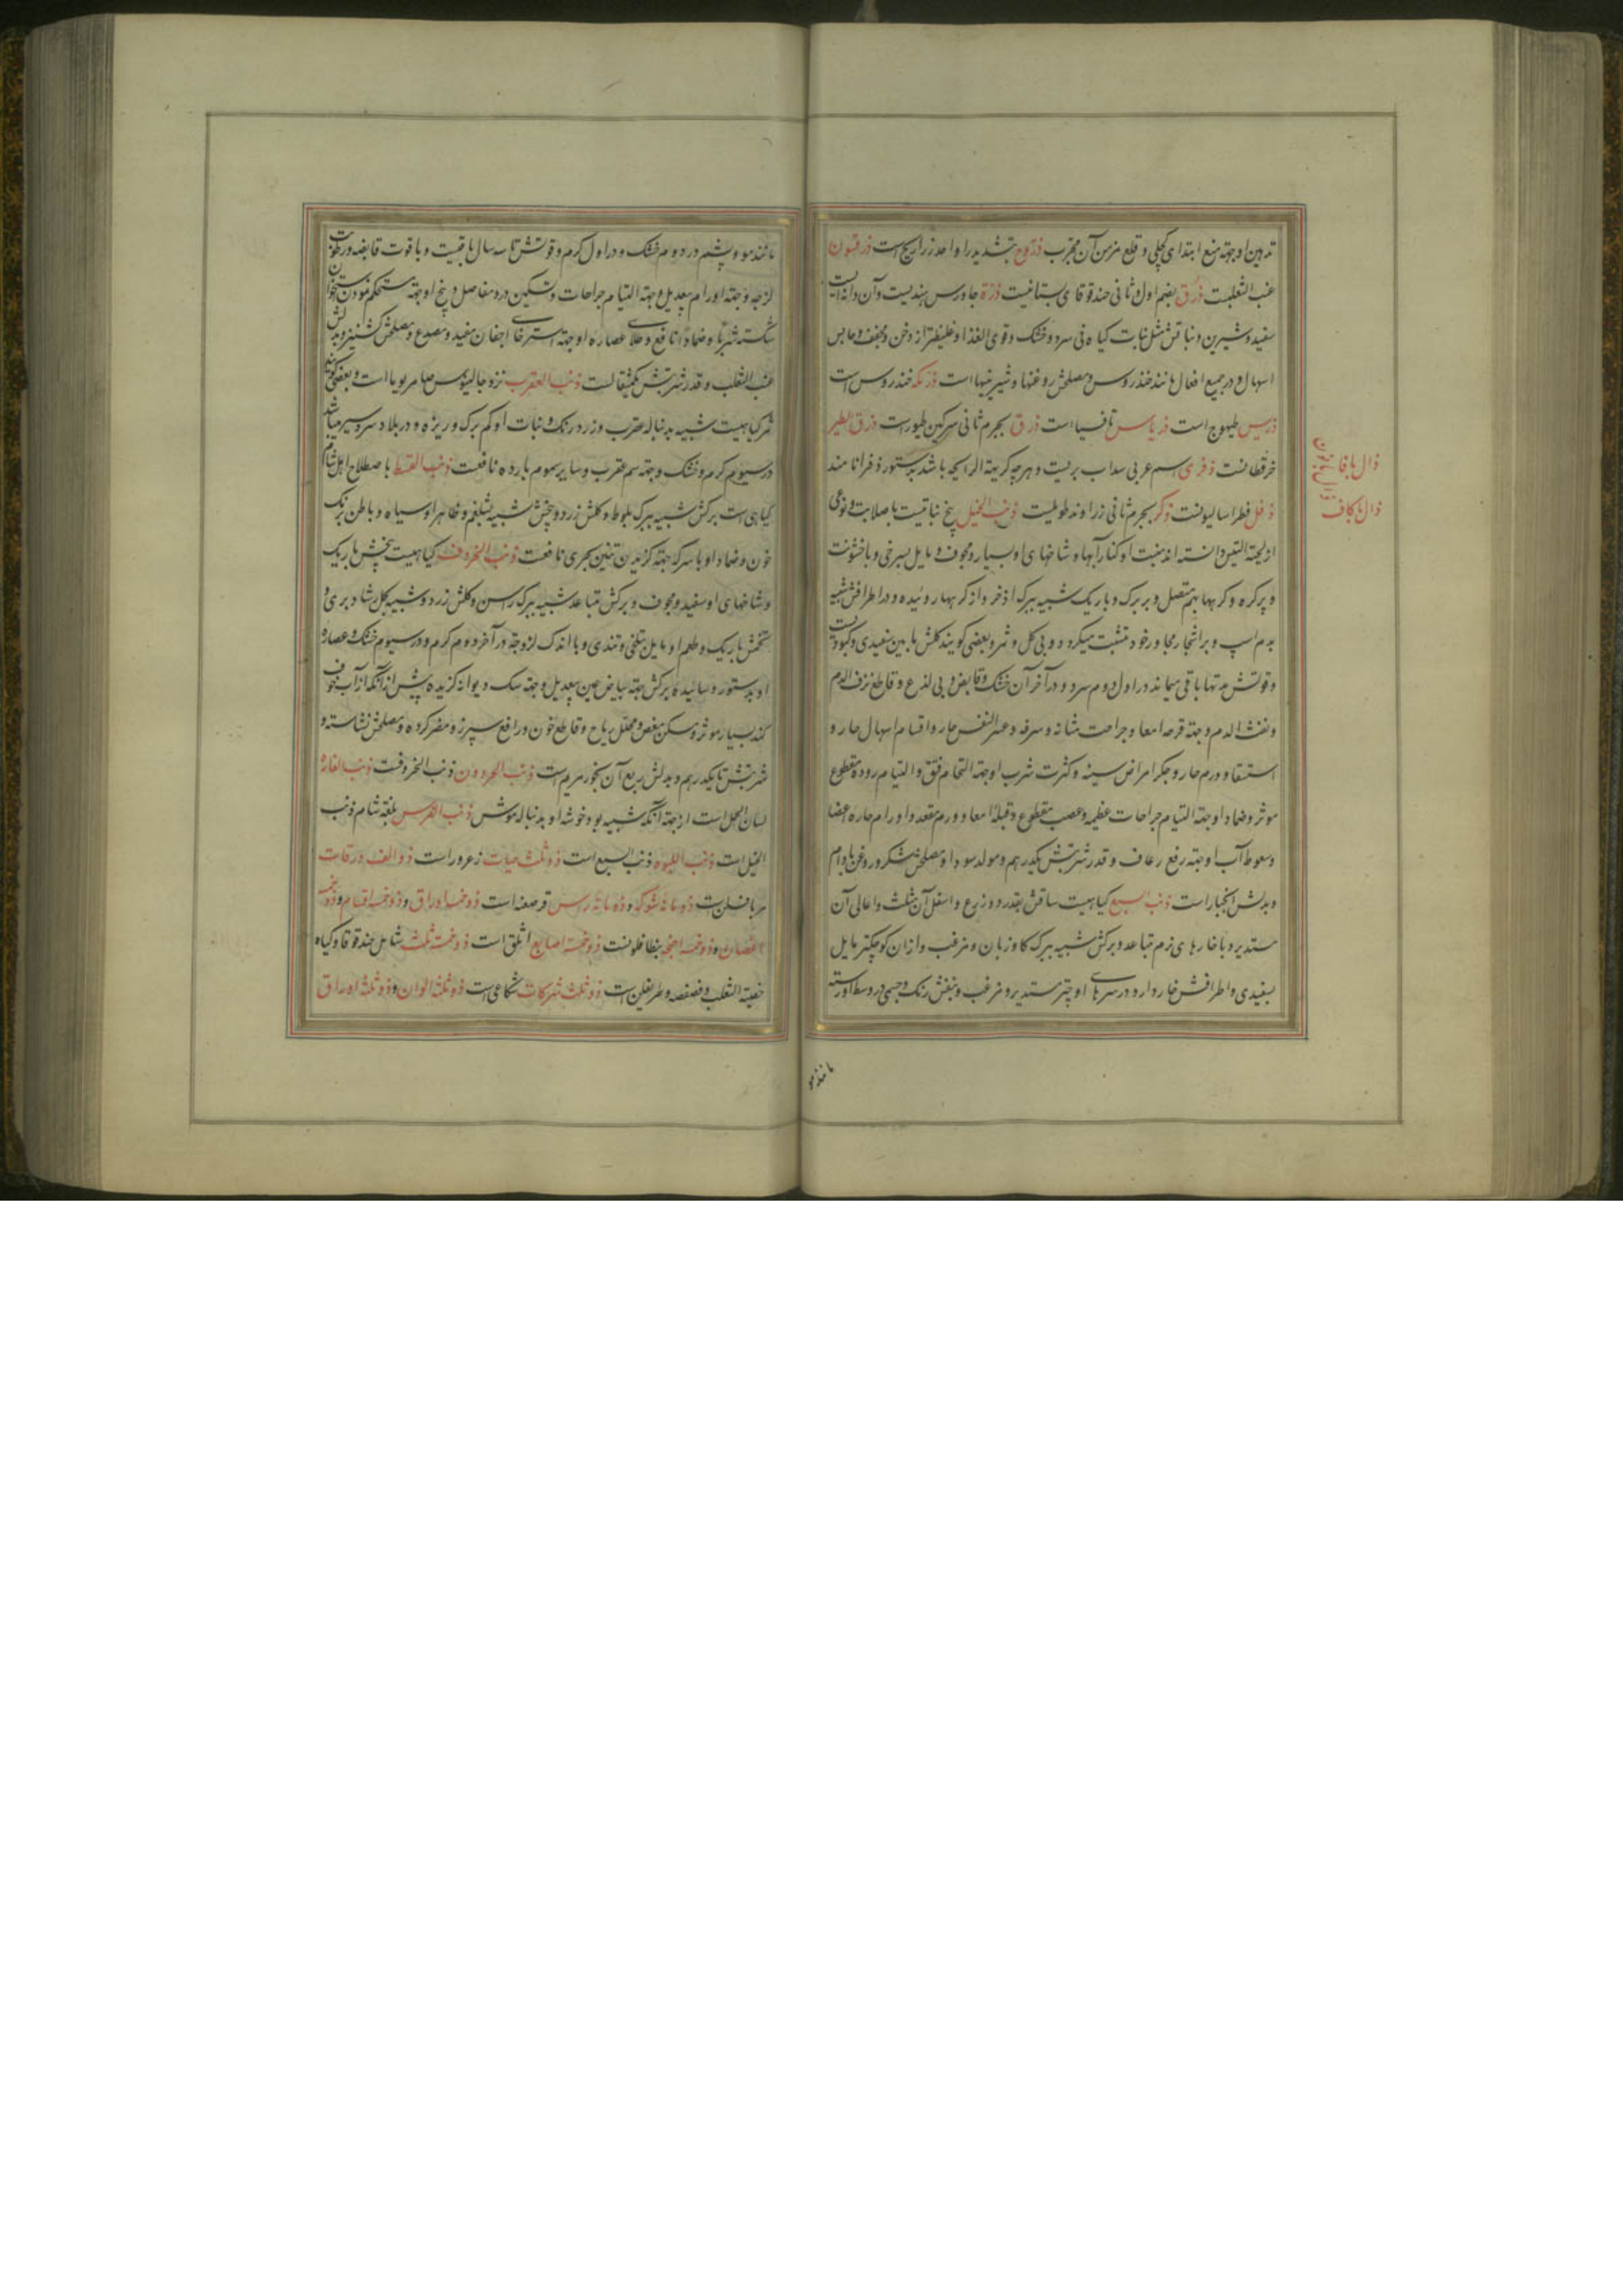 تدهین او جهته منع ابتدای کچلی و قلع مزمن آن مجرب ذروح بتشدید را واحد زراریح است ذرقنون
عنب الثعلبست ذرق بضم اول و ثانی حندقوقای بستانیست ذرة جاورس هندیست و آن دانه ایست
سفید و شیرین و نباتش مثل نبات کیاه نی سرد و خشک و قوی الغذا و غلیظتر از دخن و مجفف و حابس
اسهال و در جمیع افعال مانند خندروس و مصلحش روغنها و شیرینیها است ذرکه خندروس است
ذریس طیهوج است ذریاس تافسیا است ذرق بجرم ثانی سرکین طیور است ذرق الطیر
خرقطانست ذفری اسم عربی سداب بریست و هرچه کریهة الرایحه باشد بدستور ذفرا نامند
ذفل فطراسالیونست ذکر بجرم ثانی زراوند طویلست ذنب الخیل بیخ نباتیست با صلابت و نوعی
از لحیة التیس دانسته اند منبت او کنار آبها و شاخهای او بسیار و مجوف و مایل بسرخی و با خشونت
و پرکره و کرهها بهم متصل و بر برک و باریک شبیه ببرک اذخر و از کرهها روئیده و در اطرافش شبیه
بدم اسپ و بر اشجار مجاور خود متشبث میکردد و بی کل و ثمر و بعضی کویند کلش مابین سفیدی و کبودیست
و قوتش مدتها باقی میماند در اول و دوم سرد و در آخر آن خشک و قابض و بی لذع و قاطع نزف الدم
و نفث الدم و جهته قرحه امعا و جراحت مثانه و سرفه و عسر النفس حار و اقسام اسهال حار و
استسقا و ورم حار و جکر امراض سینه و کثرت شرب او جهته التحام فتق و التیام روده مقطوع
موثر و ضماد او جهته التیام جراحات عظیمه و عصب مقطوع و قیله امعا و ورم مقعد و اورام حاره اعضا
و سعوط آب او جهته رفع رعاف و قدر شربتش یکدرهم و مولد سودا و مصلحش شکر و روغن بادام
و بدلش انجبار است ذنب السبع کیاهیست ساقش بقدر دو زرع و اسفل آن مثلث و اعالی آن
مستدیر و با خارهای نرم متباعد و برکش شبیه ببرک کاوزبان و مزغب و ازان کوچکتر مایل
بسفیدی و اطرافش خاردار و در سرهای او چتر مستدیر و مزغب و بنفش رنک و جسمی در وسط او رسته
ذال با فا
ذال با کاف
مانند مو
مانند مو و پشم در دوم خشک و در اول کرم و قوتش تا سه سال باقیست و با قوت قابضه و رطوبت
لزجه و جهته اورام بیعدیل و جهته التیام جراحات و تسکین درد مفاصل و بیخ او جهته مستحکم نمودن استخوان
شکسته شربا و ضمادا نافع و طلای عصاره او جهته استرخای اجفان مفید و مصدع و مصلحش کشنیز و بدلش
عنب الثعلب و قدر شربتش یکمثقالست ذنب العقرب نزد جالینوس صامریوما است و بعضی کویند
ثمر کیاهیست شبیه بدنباله عقرب و زرد رنک و نبات او کم برک و ریزه و در بلاد سردسیر میباشد
در سیوم کرم و خشک و جهته سم عقرب و سایر سموم بارده نافعست ذنب القط باصطلاح اهل شام
کیاهی است برکش شبیه ببرک بلوط و کلش زرد و بیخش شبیه بشلغم و ظاهر او سیاه و باطن برنک
خون و ضماد او با سرکه جهته کزیدن تنین بحری نافعست ذنب الخروف کیاهیست بیخش باریک
و شاخهای او سفید و مجوف و برکش متباعد شبیه ببرک راسن و کلش زرد و شبیه بکل رشاد بری و
تخمش باریک و طعم او مایل بتلخی و تندی و با اندک لزوجة در آخر دوم کرم و در سیوم خشک و عصاره
او بدستور و سائیده برکش جهته بیاض عین بیعدیل و جهته سک دیوانه کزیده پیش ازانکه از آب خوف
کند بسیار موثر و مسکن مغص و محلل ریاح و قاطع خون و رافع سپرز و مضر کرده و مصلحش نشاسته و
شربتش تا یکدرهم و بدلش ربع آن بخور مریم است ذنب الحردون ذنب الخروفست ذنب الفاره
لسان الحمل است از جهته آنکه شبیه بود خوشه او بدنباله موش ذنب الفرس بلغة شام ذنب
الخیل است ذنب اللبوه ذنب السبع است ذو ثلث حبات زعرور است ذو الف ورقات
مریافلن است ذو مائه شوکه و ذو مائة رس قرصعنه است ذو خمسه اوراق و ذو خمسه اقسام و ذو خمسه
اغصان و ذو خمسه اجنحه بنطافلونست ذو خمسة اصابع اثلق است ذو خمسة ثلث شامل حندقوقا و کیاه
خصیة الثعلب و فصفصه و طریفلن است ذو ثلث شوکات شکاعی است ذو ثلثة الوان و ذو ثلثة اوراق